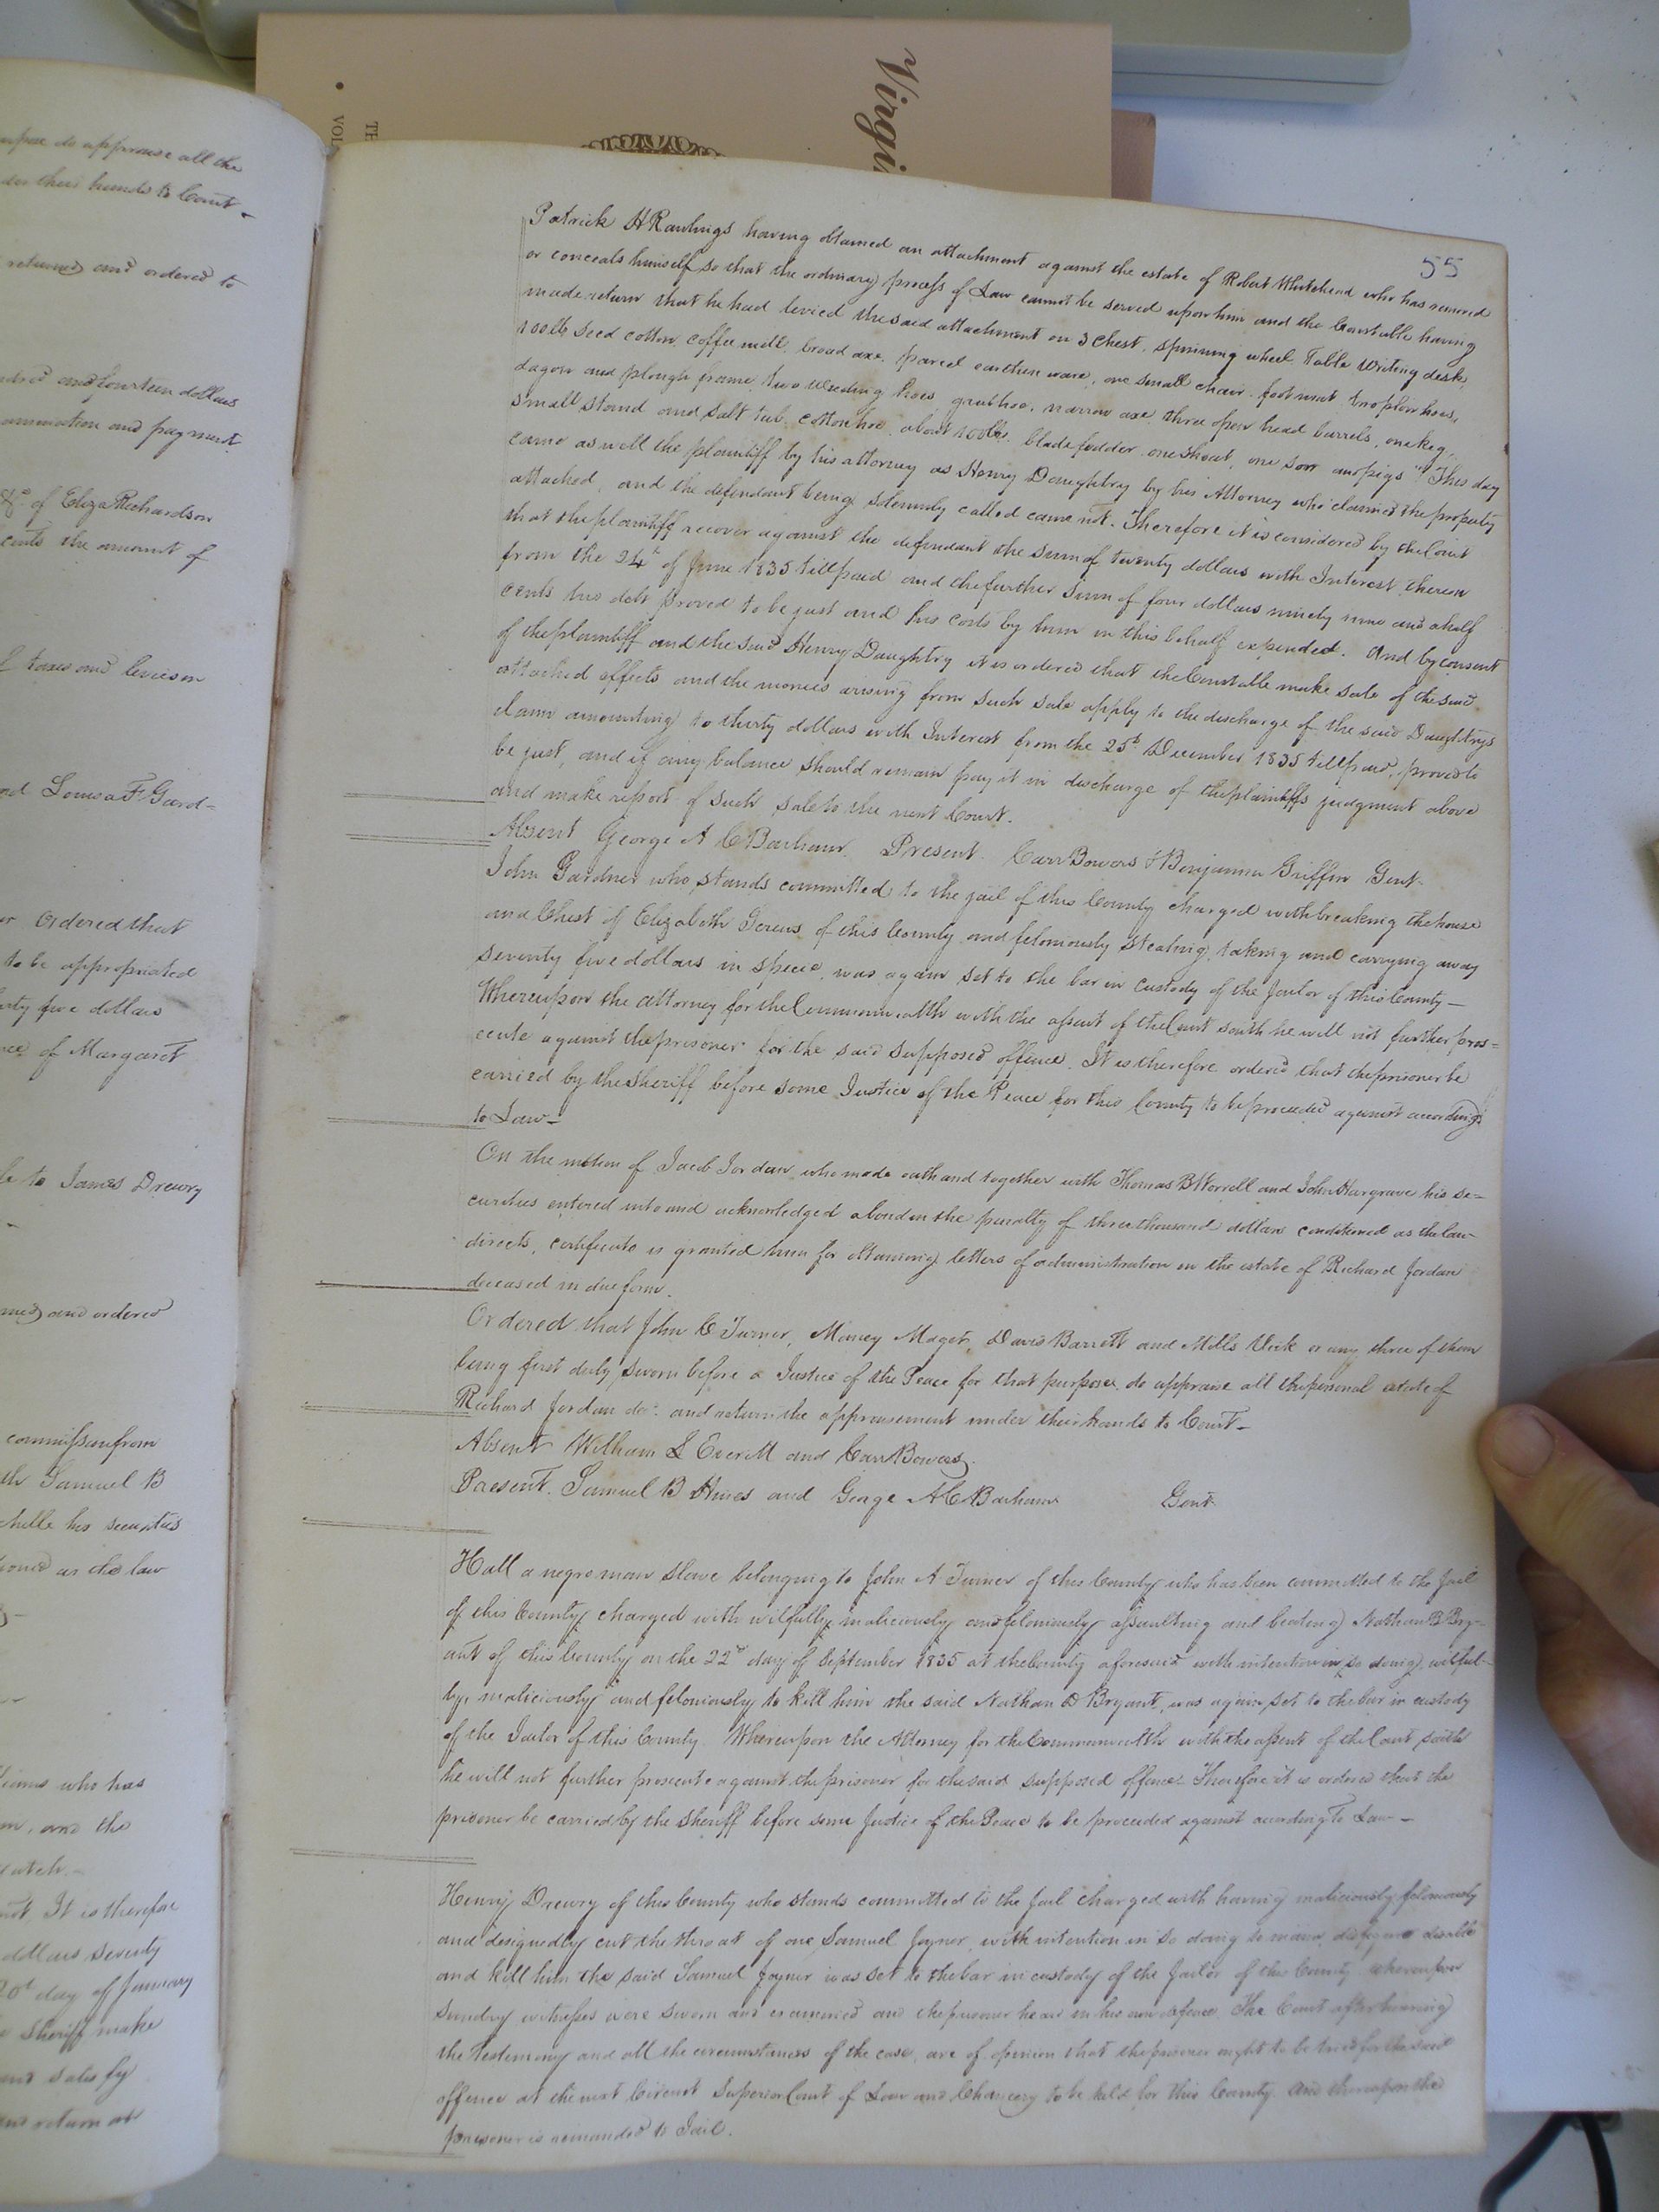 Virgi
VOL
55
Patrick H Rawlings having obtained an attachment against the estate of Robert Whitehead who has removed
or conceals himself so that the ordinary process of Law cannot be served upon him and the Constable having
made return that he had levied the said attachment on 3 chest, spinning wheel, Table writing desk,
100 lb seed cotton, coffee mill, broad axe, parcel earthen ware, one small chair, foot unit, two plow hoes,
dagon and plough frame, two weeding hoes, grub hoe, narrow axe, three open head barrels, one keg,
small stand and salt tub, cotton hoe, about 100 lbs. blade fodder, one shoat, one sow and pigs" This day
came as well the plaintiff by his attorney as Henry Daughtry by his Attorney who claimed the property
attached, and the defendant being solemnly called came not. Therefore it is considered by the Court
that the plaintiff recover against the defendant the sum of twenty dollars with Interest thereon
from the 24th of June 1835 till paid and the further sum of four dollars ninety nine and a half
cents his debt proved to be just and his costs by him in this behalf expended. And by consent
of the plaintiff and the said Henry Daughtry it is ordered that the Constable make sale of the said
attached effects and the monies arising from such sale apply to the discharge of the said Daughtrys
claim amounting to thirty dollars with Interest from the 25th December 1835 till paid, proved to
be just, and if any balance should remain pay it in discharge of the plaintiffs judgment above
and make report of such sale to the next Court.
Absent George A C Barham. Present. Carr Bowers & Benjamin Griffin Gent.
John Gardner who stands committed to the jail of this County charged with breaking the house
and Chest of Elizabeth of this County and feloniously stealing, taking and carrying away
seventy five dollars in specie, was again set to the bar in custody of the Jailor of this County—
Whereupon the attorney for the Commonwealth with the assent of the Court saith he will not further pros=
ecute against the prisoner for the said supposed offence. It is therefore ordered that the prisoner be
carried by the Sheriff before some Justice of the Peace for this County to be proceeded against according
to Law—
On the motion of Jacob Jordan who made oath and together with Thomas B Worrell and John Hargrave his se=
curities entered into and acknowledged a bond in the penalty of three thousand dollars conditioned as the law
directs, certificate is granted him for obtaining letters of administration on the estate of Richard Jordan
deceased in due form.
Ordered that John C Turner, Maget, David Barrett and Mills Vick or any three of them
being first duly sworn before a Justice of the Peace for that purpose do appraise all the personal estate of
Richard Jordan decd. and return the appraisement under their hands to Court—
Absent William L Everitt and Carr Bowers.
Present. Samuel B Hines and George A C Barham Gent
Hall a negro man slave belonging to John A Turner of this County who has been committed to the Jail
of this County charged with wilfully, maliciously and feloniously assaulting and beating Nathan B Bry-
ant of this County on the 22nd day of September 1835 at the County aforesaid with intention in so doing, wilful-
ly, maliciously and feloniously to kill him the said Nathan D Bryant, was again set to the bar in custody
of the Jailor of this County. Whereupon the Attorney for the Commonwealth with the assent of the Court saith
he will not further prosecute against the prisoner for the said supposed offence. Therefore it is ordered that the
prisoner be carried by the Sheriff before some Justice of the Peace to be proceeded against according to Law—
Henry Drewry of this County who stands committed to the Jail charged with having maliciously feloniously
and designedly cut the throat of one Samuel Joyner, with intention in so doing to maim, disfigure disable
and kill him the said Samuel Joyner was set to the bar in custody of the Jailor of this County whereupon
sundry witnesses were sworn and examined and the prisoner heard in his own defence. The Court after hearing
the testimony and all the circumstances of the case, are of opinion that the prisoner ought to be tried for the said
offence at the next Circuit Superior Court of Law and Chancery to be held for this County and thereupon the
prisoner is remanded to Jail.
do appraise all the
their hands to Court-
returned and ordered to
and fourteen dollars
and payment
&c. of Eliza Richardson
cents the amount of
taxes and levies on
Louisa F Gard=
ordered that
to be appropriated
five dollars
of Margaret
to James Drewry
and ordered
commission from
Samuel B
his securities
as the law
who has
and the
It is therefore
dollars seventy
20th day of January
Sheriff make
and satisfy
and return at